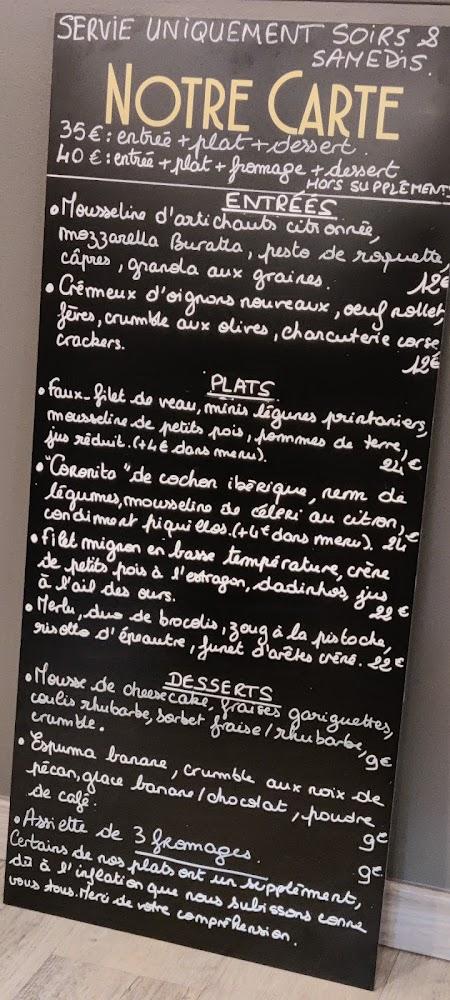 SERVIE UNIQUEMENT SOIRS &
SAMEDIS.
NOTRE CARTE
35€: entrée + plat + dessert.
40€: entrée + plat + fromage + dessert
HORS SUPPLÉMENTS
ENTRÉES
• Mousseline d'artichauts citronnée,
mozzarella Buratta, pesto de roquette,
câpres, granola aux graines. 12€
• Crémeux d'oignons nouveaux, oeuf mollet,
fèves, crumble aux olives, charcuterie corse,
crackers. 12€
PLATS
• Faux-filet de veau, minis légumes printaniers,
mousseline de petits pois, pommes de terre,
jus réduit. (+4€ dans menu). 24€
• "Coronito" de cochon ibérique, nem de
légumes, mousseline de céleri au citron,
condiment piquillos. (+4€ dans menu). 24€
• Filet mignon en basse température, crème
de petits pois à l'estragon, dadinhos, jus
à l'ail des ours. 22€
• Merlu, duo de brocolis, zoug à la pistache,
risotto d'épeautre, fumet d'arêtes crémé. 22€
DESSERTS
• Mousse de cheesecake, fraises gariguettes,
coulis rhubarbe, sorbet fraise/rhubarbe,
crumble. 9€
• Espuma banane, crumble aux noix de
pécan, glace banane/chocolat, poudre
de café. 9€
• Assiette de 3 fromages. 9€
Certains de nos plats ont un supplément,
dû à l'inflation que nous subissons comme
vous tous. Merci de votre compréhension.